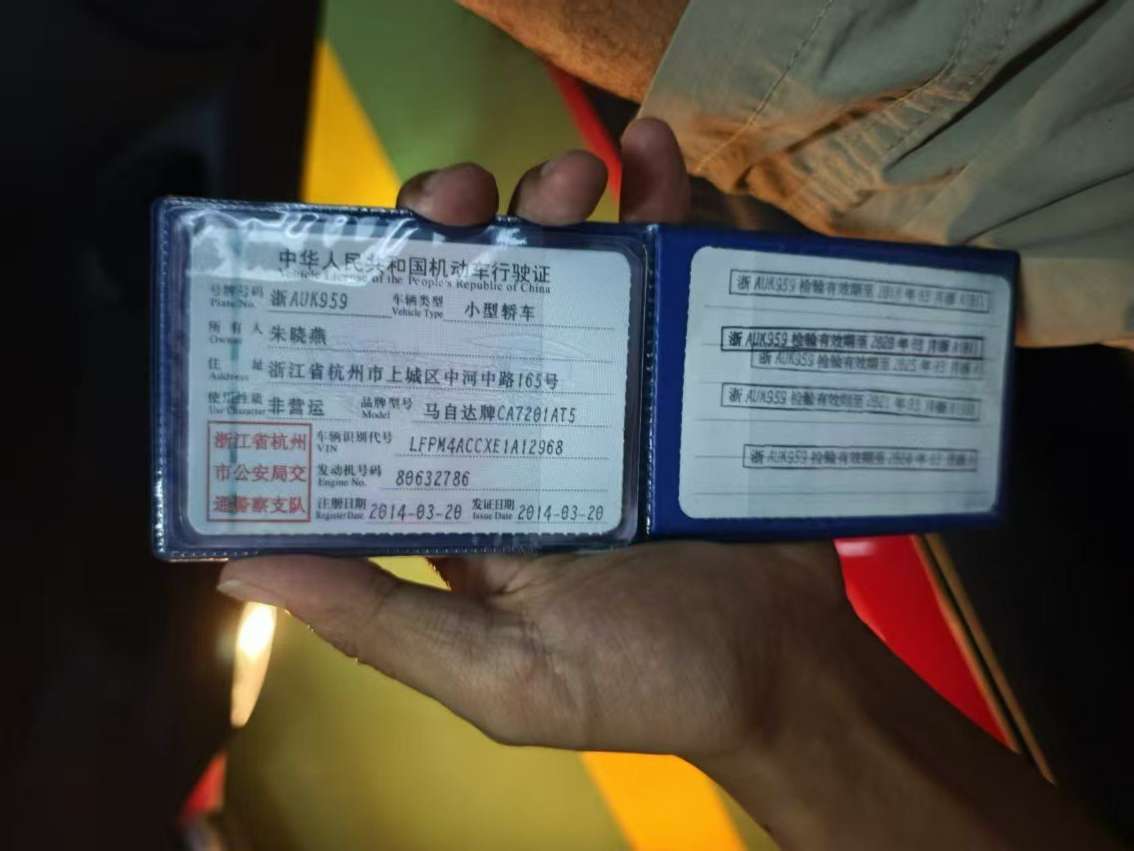 中华人民共和国机动车行驶证
Vehicle License of the People's Republic of China
号牌号码 浙AUK959 车辆类型 小型轿车
Plate No. Vehicle Type
所有人 朱晓燕
Owner
住址 浙江省杭州市上城区中河中路165号
Address
使用性质 非营运 品牌型号 马自达牌CA7201AT5
Use Character Model
浙江省杭州
市公安局交
通警察支队
车辆识别代号 LFPM4ACCXE1A12968
VIN
发动机号码 80632786
Engine No.
注册日期 2014-03-20 发证日期 2014-03-20
Register Date Issue Date
浙AUK959 检验有效期至 年03月
浙AUK959 检验有效期至2020年03月
浙AUK959 检验有效期至2025年03月
浙AUK959 检验有效期至2021年03月
浙AUK959 检验有效期至 年03月